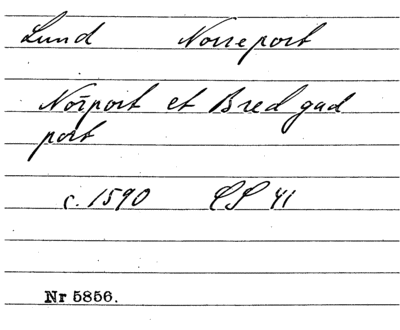 Lund Norreport
Nor̄port et Bred gad
port
c. 1590 PS 41
Nr 5856.